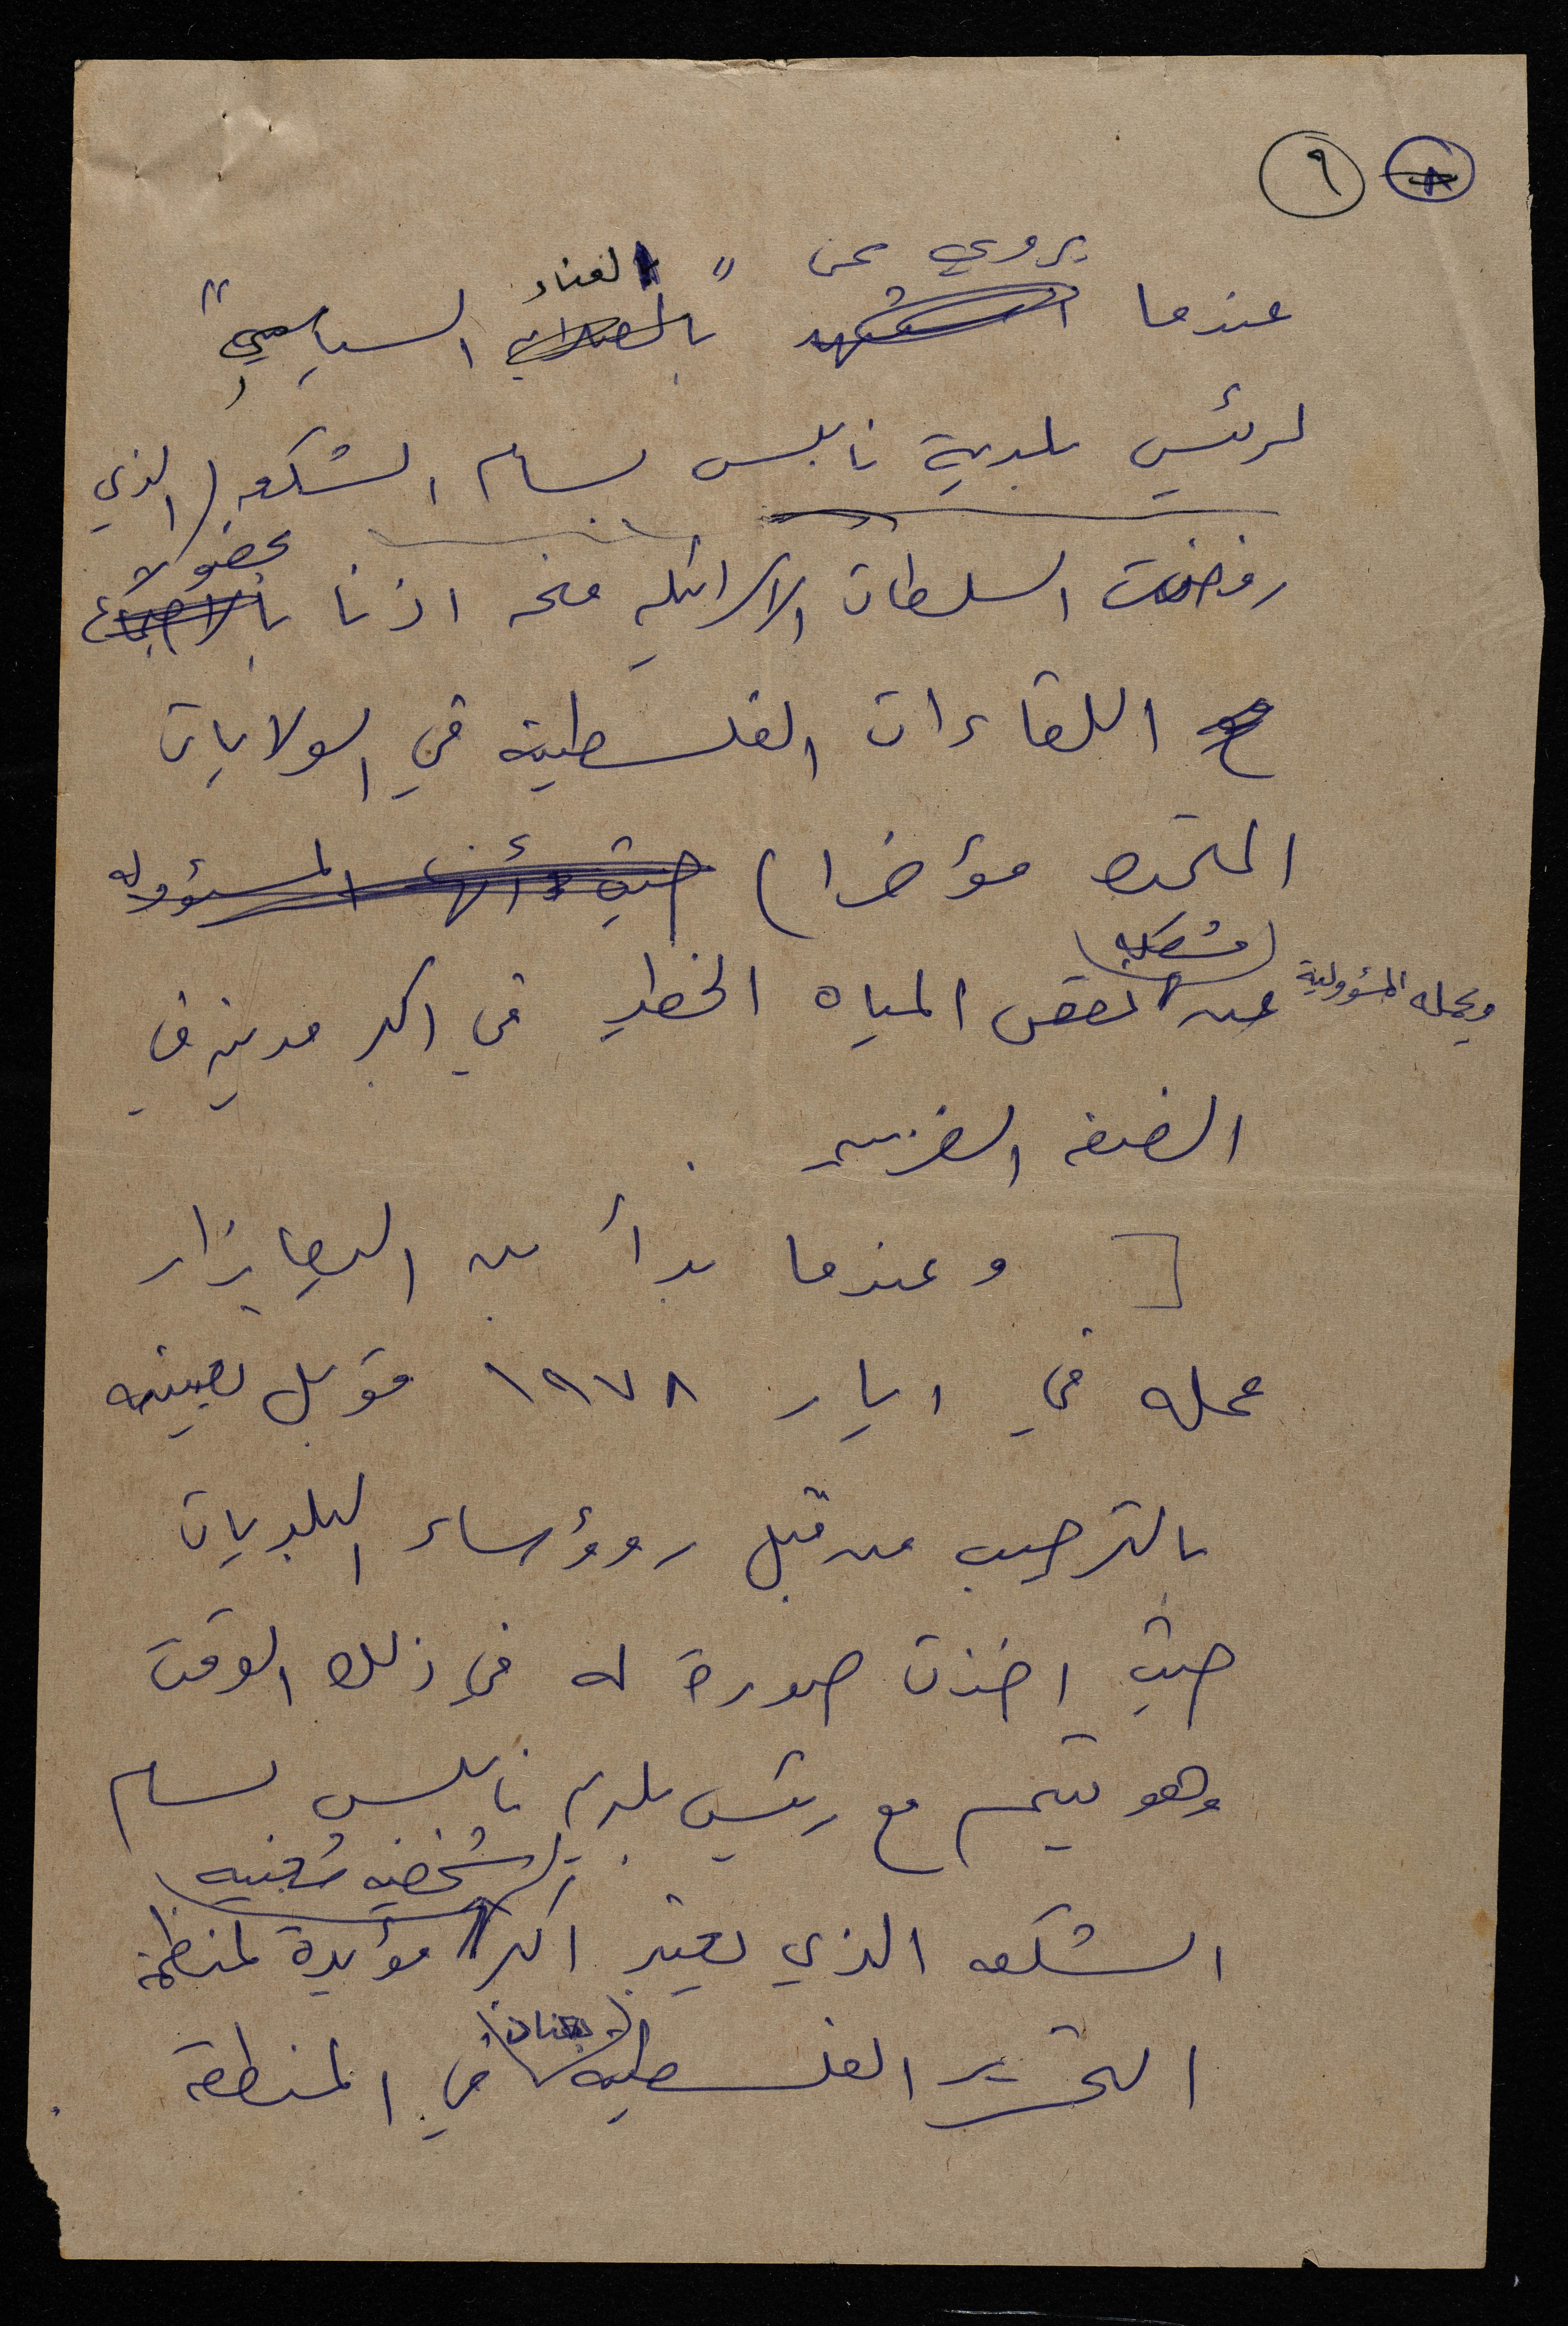 ٨ ٩
يروي عن " العناد
عندما استشهد بالصلابة السياسي "
لرئيس بلدية نابلس بسام الشكعه (الذي
بحضور
رفضت السلطات الاسرائيليه منحه اذنا بالاجتماع
مع اللقاءات الفلسطينية في الولايات
المتحده مؤخرا) حيث أنها المسؤوله
ويحمله المسؤولية
مشكلة
عن نقص المياه الخطير في اكبر مدينه في
الضفه الغربيه .
[ وعندما بدأ بن اليعازار
عمله في ايار ١٩٧٨ قوبل تعيينه
بالترحيب من قبل روؤساء البلديات
حيث اخذت صورة له في ذلك الوقت
وهو يتبسم مع رئيس بلدية نابلس بسام
شخصيه شعبيه
الشكعه الذي يعتبر اكثر مؤيدة لمنظمة
التحرير الفلسطينيه في المنطقة .